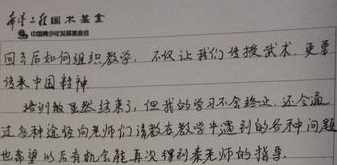 希望工程国术基金
中国青少年发展基金会
回去后如何组织教学,不仅让我们传授武术,更要
传承中国精神
培训虽然结束了,但我的学习不会终止,还会通
过各种途径向老师们请教在教学中遇到的各种问题
也希望以后有机会能再次得到秦老师的指导.